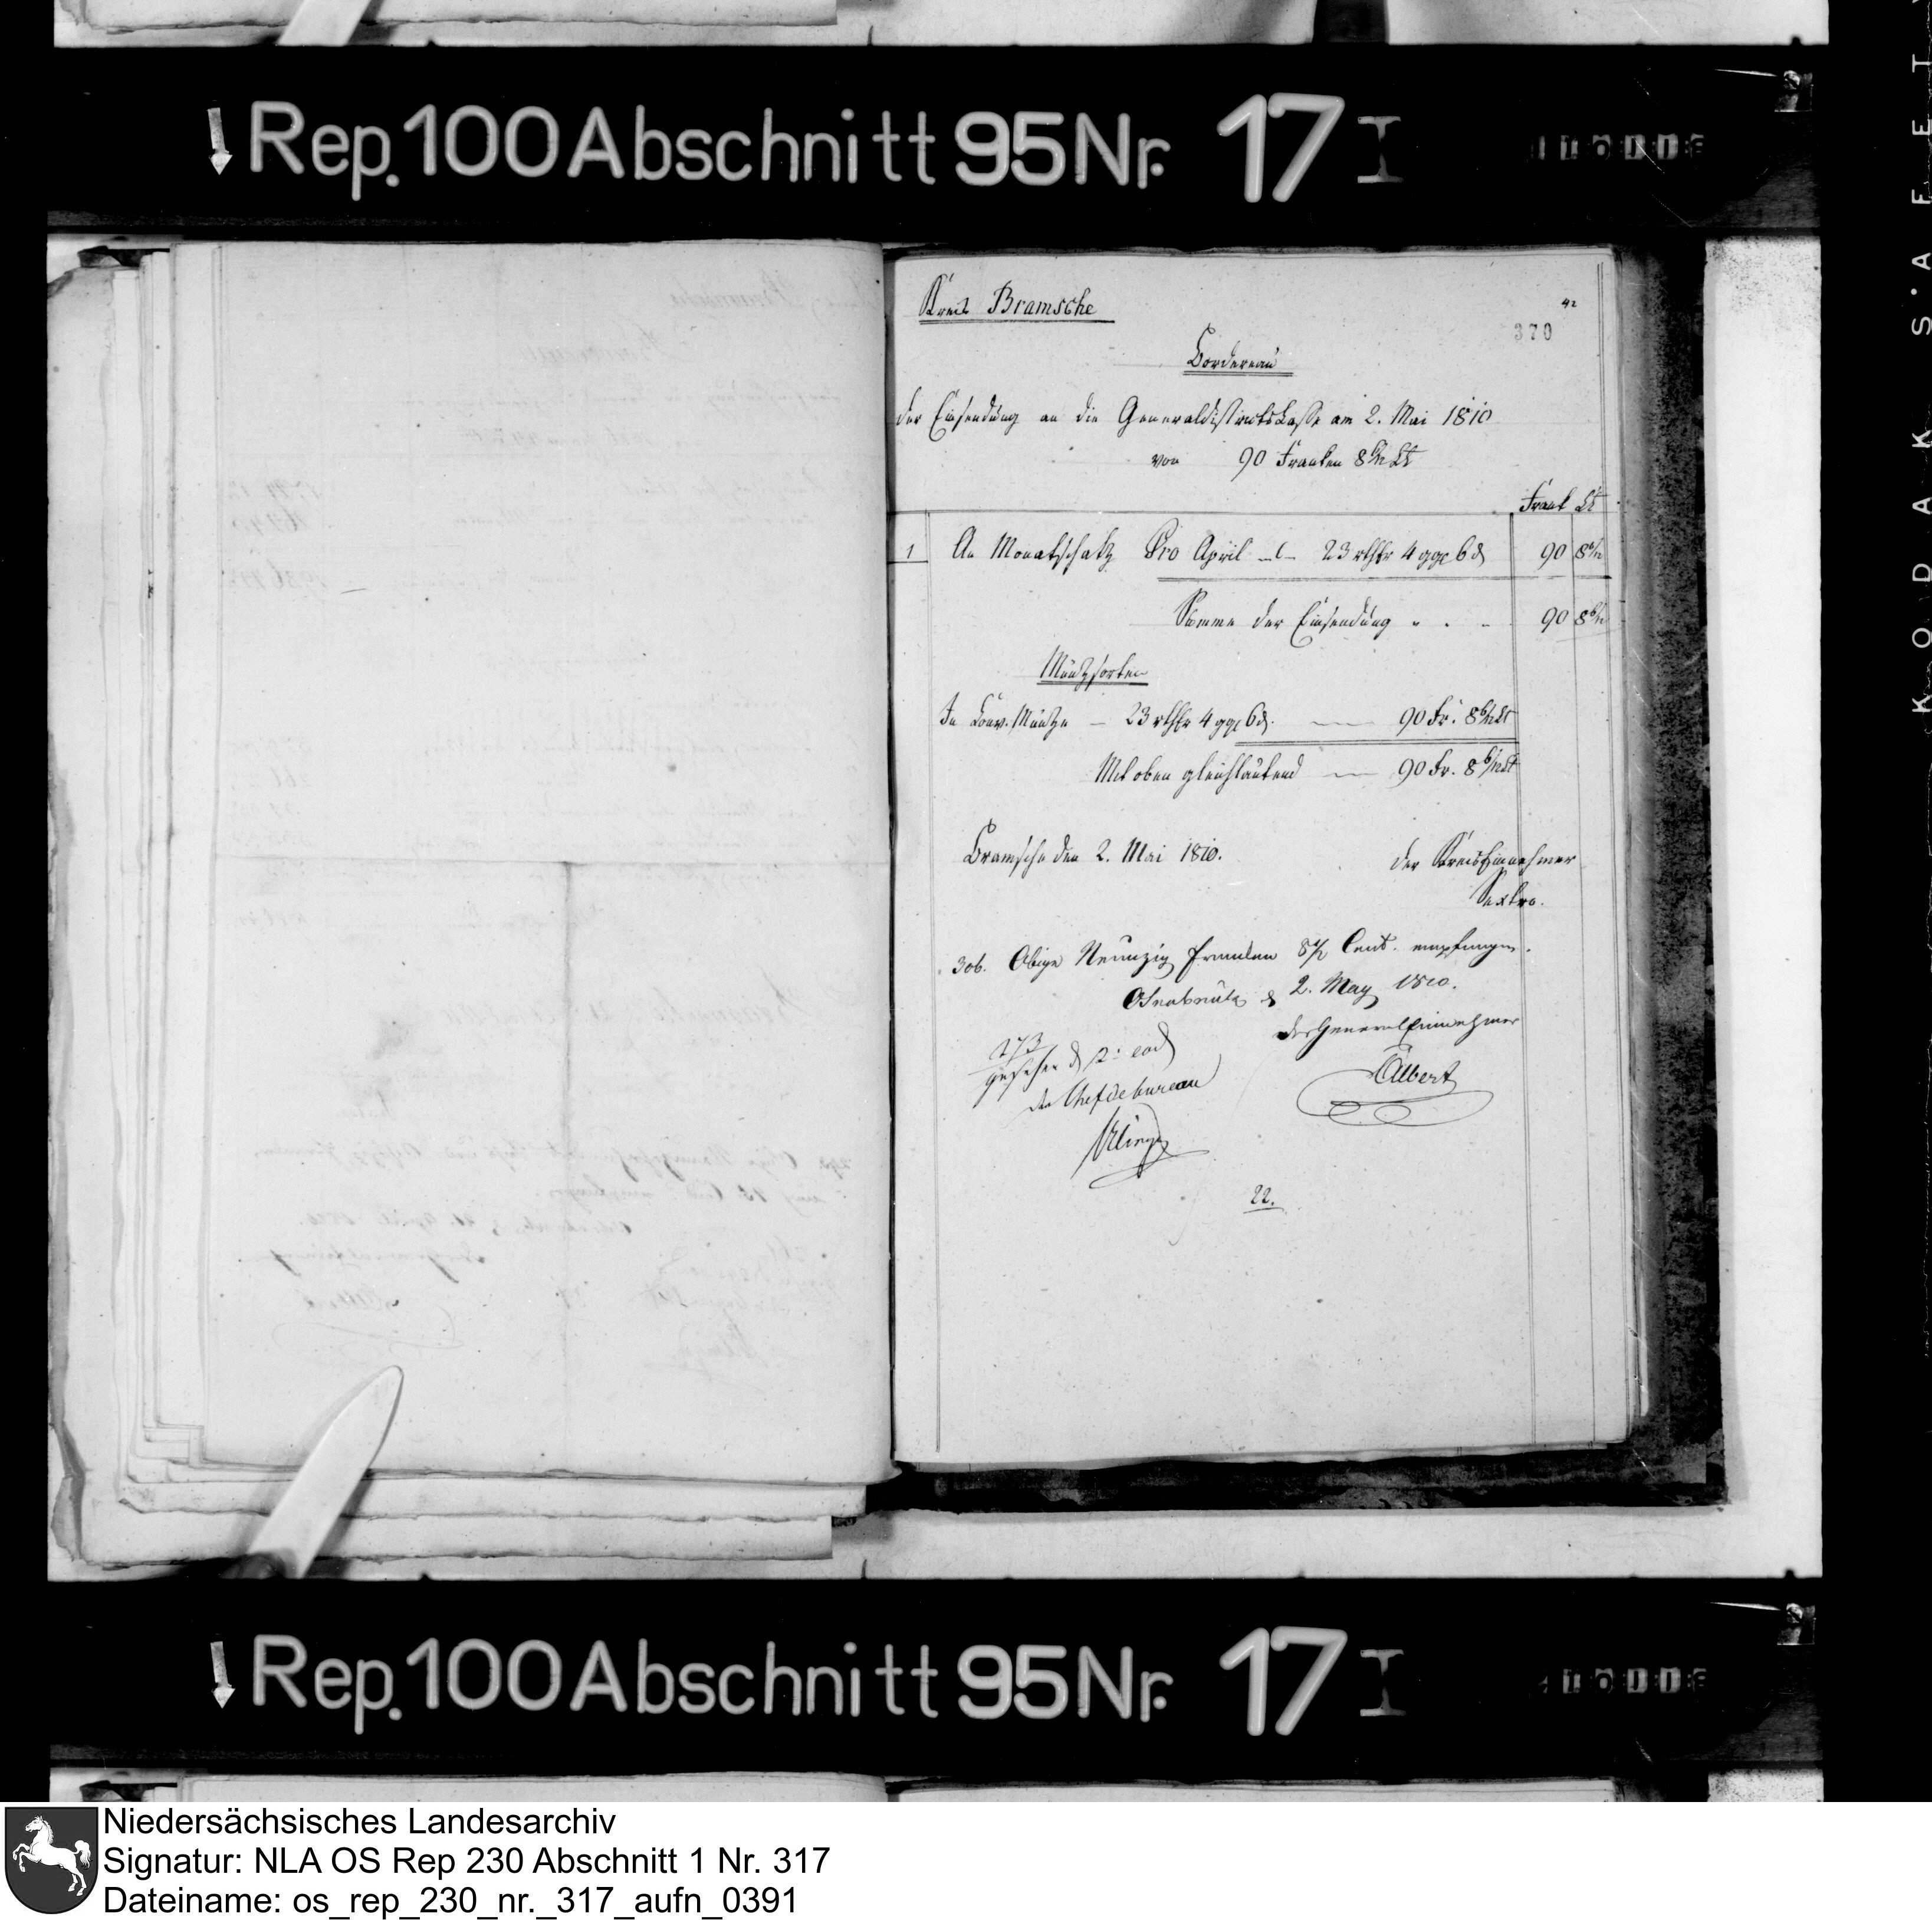 ↓ Rep. 100 Abschnitt 95 Nr. 17 I
KODAK S.A.F.E.T.
Kreis Bramsche
42
370
Bordereau
der Einsendung an die Generaldistriktskasse am 2. Mai 1810
von 90 Franken 8 6/12 Ct
Frank Ct
1 An Monatschatz Pro April 23 rthlr 4 ggr 6 d 90 8 6/12
Summe der Einsendung 90 8 6/12
Müntzsorten
In Conv. Müntze — 23 rthlr 4 ggr 6 d. — 90 Fr. 8 6/12 Ct
Mit oben gleichlautend — 90 Fr. 8 6/12 Ct
Bramsche den 2. Mai 1810.
der Kreiseinnehmer
Sextro.
306. Obige Neunzig Franken 8 1/2 Cent. empfangen.
Osnabrück d 2. May 1810.
der GeneralEinnehmer
Albert
273
gesehen d 2. eod
der Chef de bureau
22.
↓ Rep. 100 Abschnitt 95 Nr. 17 I
Niedersächsisches Landesarchiv
Signatur: NLA OS Rep 230 Abschnitt 1 Nr. 317
Dateiname: os_rep_230_nr._317_aufn_0391